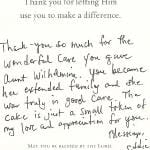 Thank you for letting Him
use you to make a difference.
Thank you so much for the
wonderful care you gave
Aunt Wilhelmina. You became
her extended family and she
was truly in good care. The
cake is just a small token of
my love and appreciation for you.
Blessings,
Eddie
MAY YOU BE BLESSED BY THE LORD